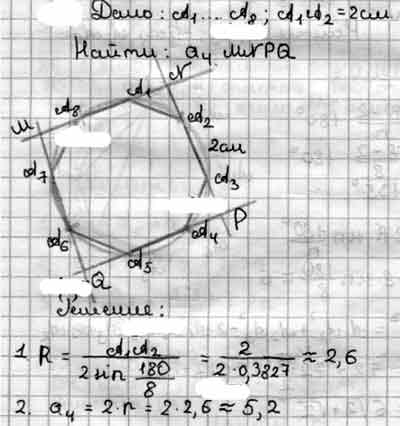 Дано: A₁...A₈; A₁A₂ = 2 см
Найти: a₄ MNPQ
N
A₁
A₈
A₂
M
2 см
A₇
A₃
P
A₆
A₄
A₅
Q
Решение:
1. R = A₁A₂ / (2 sin 180/8) = 2 / (2·0,3827) ≈ 2,6
2. a₄ = 2·r = 2·2,6 ≈ 5,2